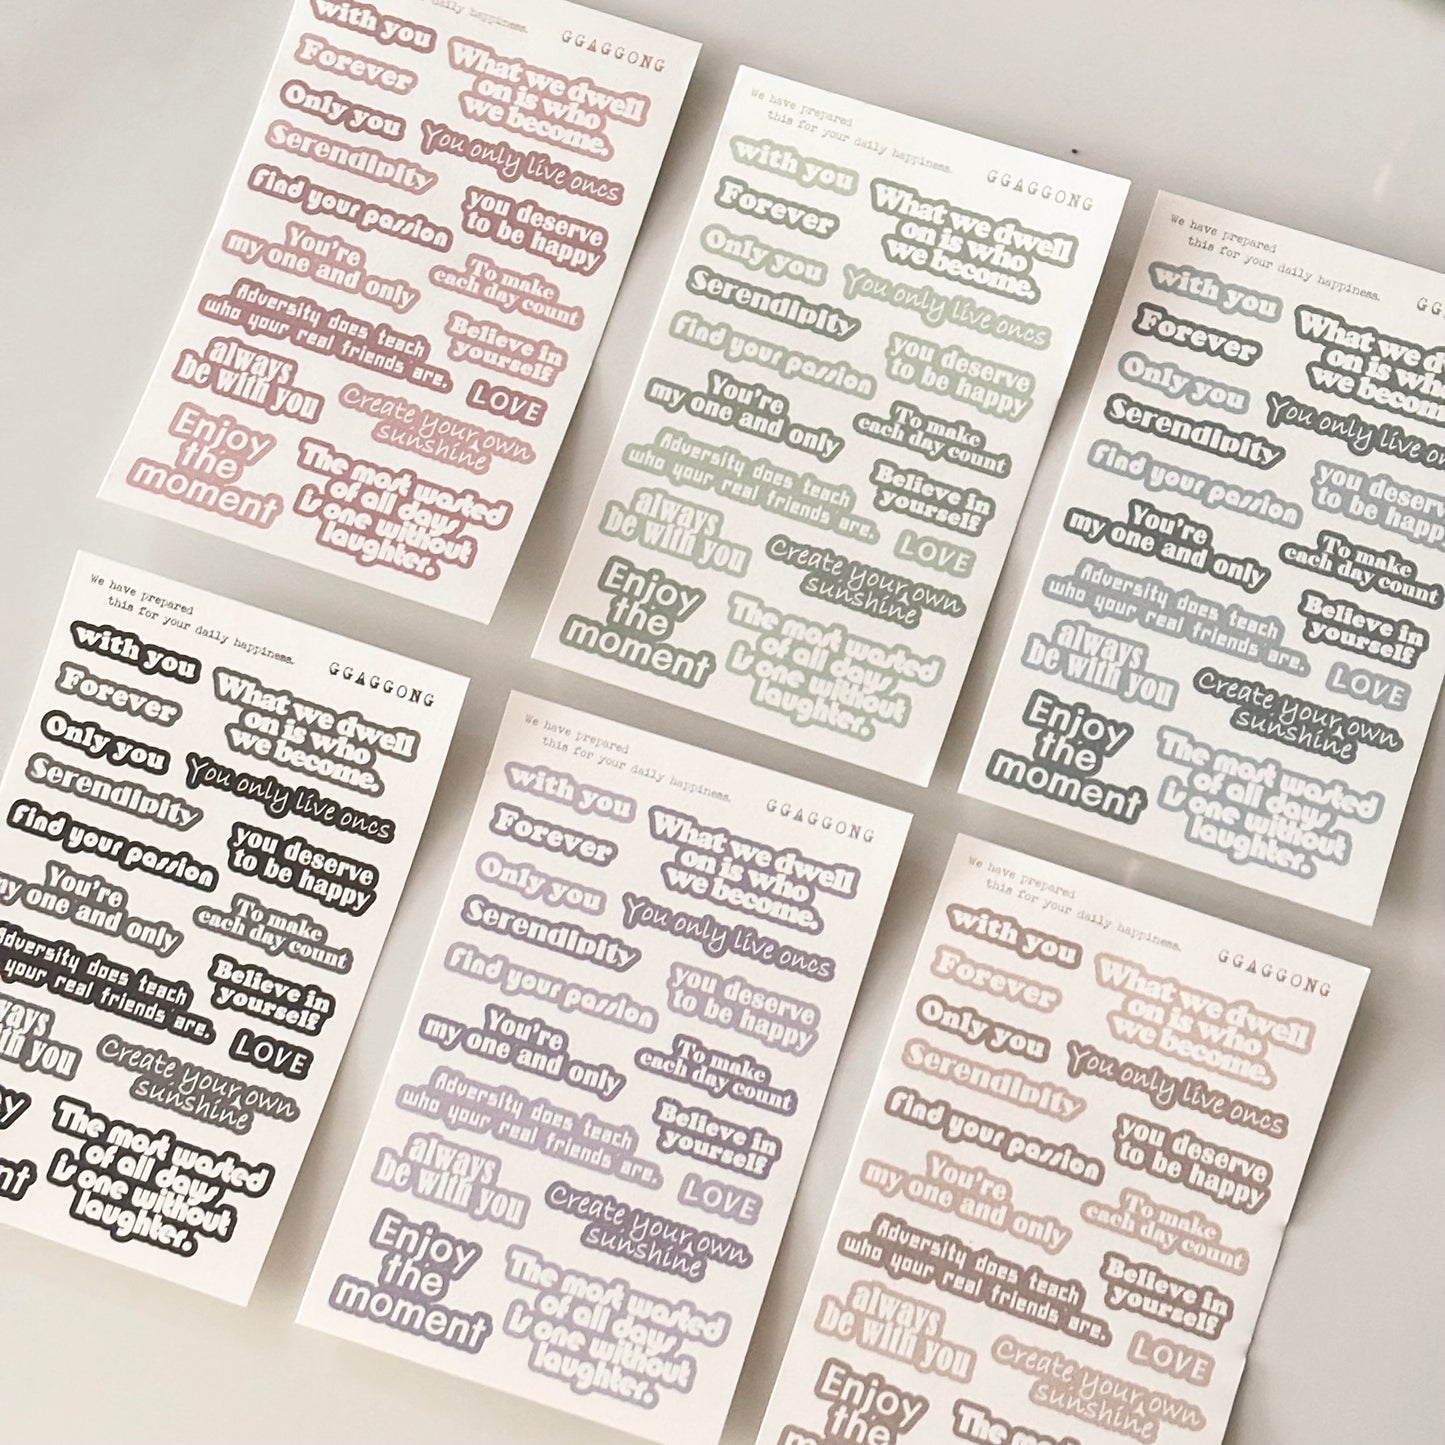 daily happiness.
GGAGGONG
with you
Forever
What we dwell
on is who
we become.
Only you
You only live oncs
Serendipity
find your passion
you deserve
to be happy
You're
my one and only
To make
each day count
Adversity does teach
who your real friends are.
Believe in
yourself
always
be with you
LOVE
Create your own
sunshine
Enjoy
the
moment
The most wasted
of all days
is one without
laughter.
We have prepared
this for your daily happiness.
GGAGGONG
with you
Forever
What we dwell
on is who
we become.
Only you
You only live oncs
Serendipity
find your passion
you deserve
to be happy
You're
my one and only
To make
each day count
Adversity does teach
who your real friends are.
Believe in
yourself
always
be with you
LOVE
Create your own
sunshine
Enjoy
the
moment
The most wasted
of all days
is one without
laughter.
We have prepared
this for your daily happiness.
with you
Forever
What we
on is
we
Only you
You only live
Serendipity
find your passion
you
to be
You're
my one and only
To make
each day count
Adversity does teach
who your real friends are.
Believe in
yourself
always
be with you
LOVE
Create your own
sunshine
Enjoy
the
moment
The most wasted
of all days
is one without
laughter.
We have prepared
this for your daily happiness.
GGAGGONG
with you
Forever
What we dwell
on is who
we become.
Only you
You only live oncs
Serendipity
find your passion
you deserve
to be happy
You're
my one and only
To make
each day count
Adversity does teach
your real friends are.
Believe in
yourself
with you
LOVE
Create your own
sunshine
The most wasted
of all days
is one without
laughter.
We have prepared
this for your daily happiness.
GGAGGONG
with you
Forever
What we dwell
on is who
we become.
Only you
You only live oncs
Serendipity
find your passion
you deserve
to be happy
You're
my one and only
To make
each day count
Adversity does teach
who your real friends are.
Believe in
yourself
always
be with you
LOVE
Create your own
sunshine
Enjoy
the
moment
The most wasted
of all days
is one without
laughter.
We have prepared
this for your daily happiness.
GGAGGONG
with you
Forever
What we dwell
on is who
we become.
Only you
You only live oncs
Serendipity
find your passion
you deserve
to be happy
You're
my one and only
To make
each day count
Adversity does teach
who your real friends are.
Believe in
yourself
always
be with you
LOVE
Create your own
sunshine
Enjoy
the
The most